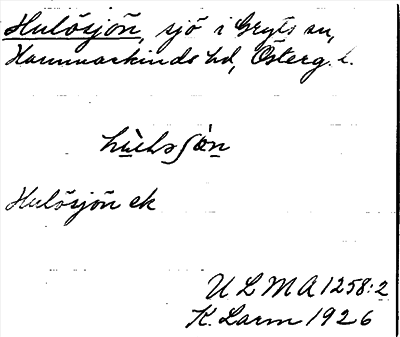 Hulösjön, sjö i Gryts sn,
Hammarkinds hd, Österg. l.
Hulösjön ek
ULMA 1258:2
K. Larm 1926